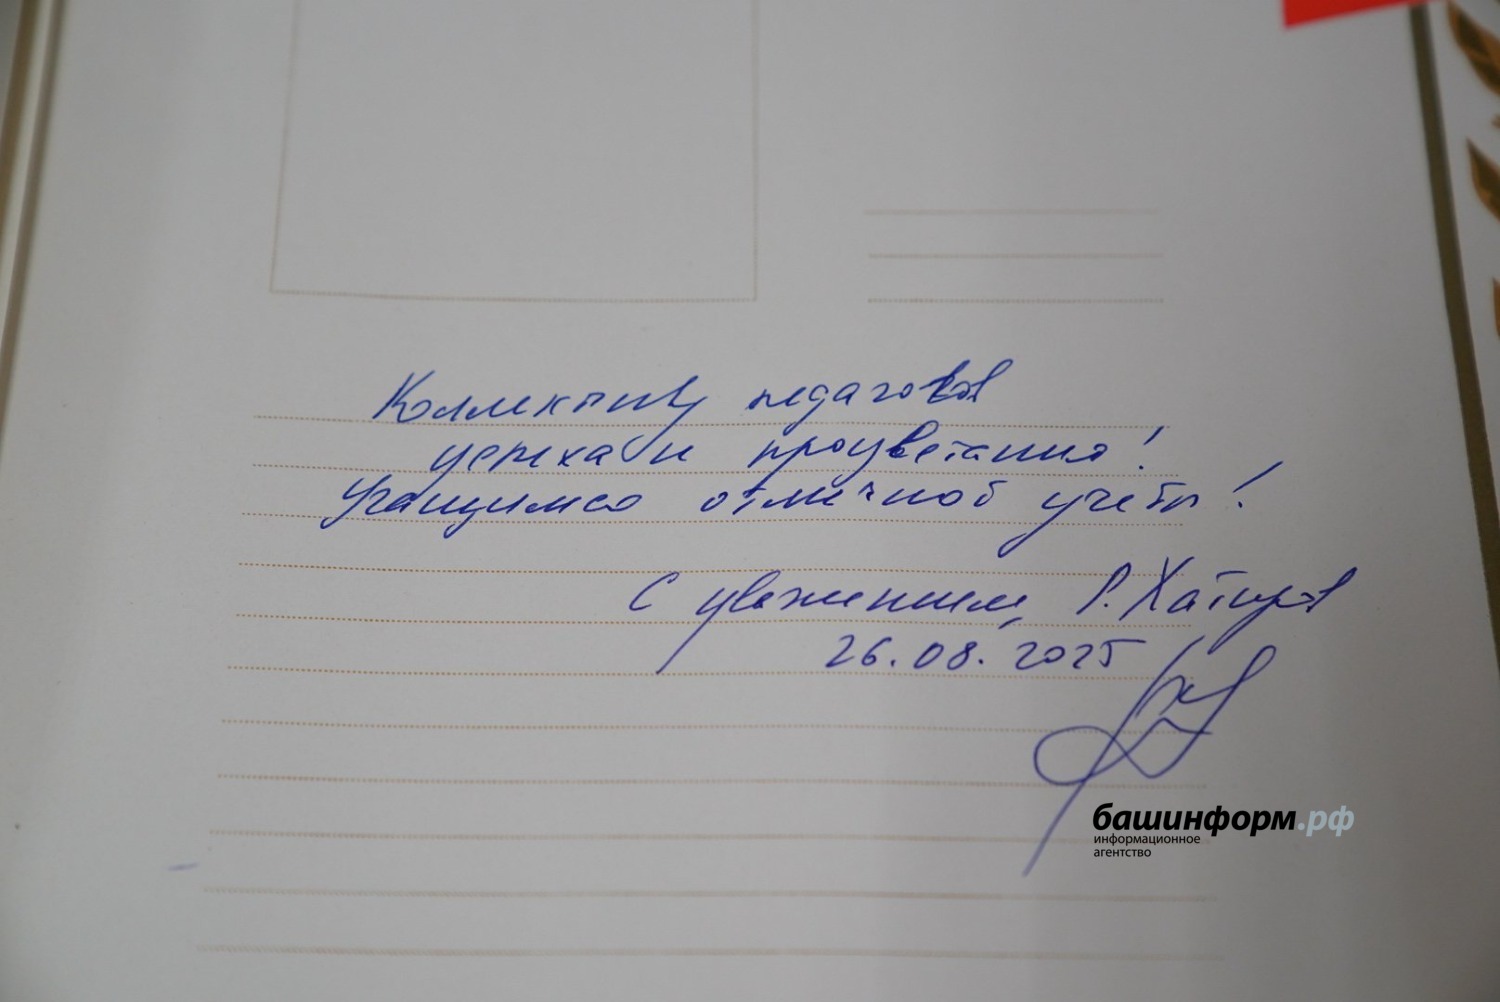 Коллективу педагогов
успеха и процветания!
Учащимся отличной учебы!
С уважением, Р. Хабиров
26.08.2025
башинформ.рф
информационное
агентство